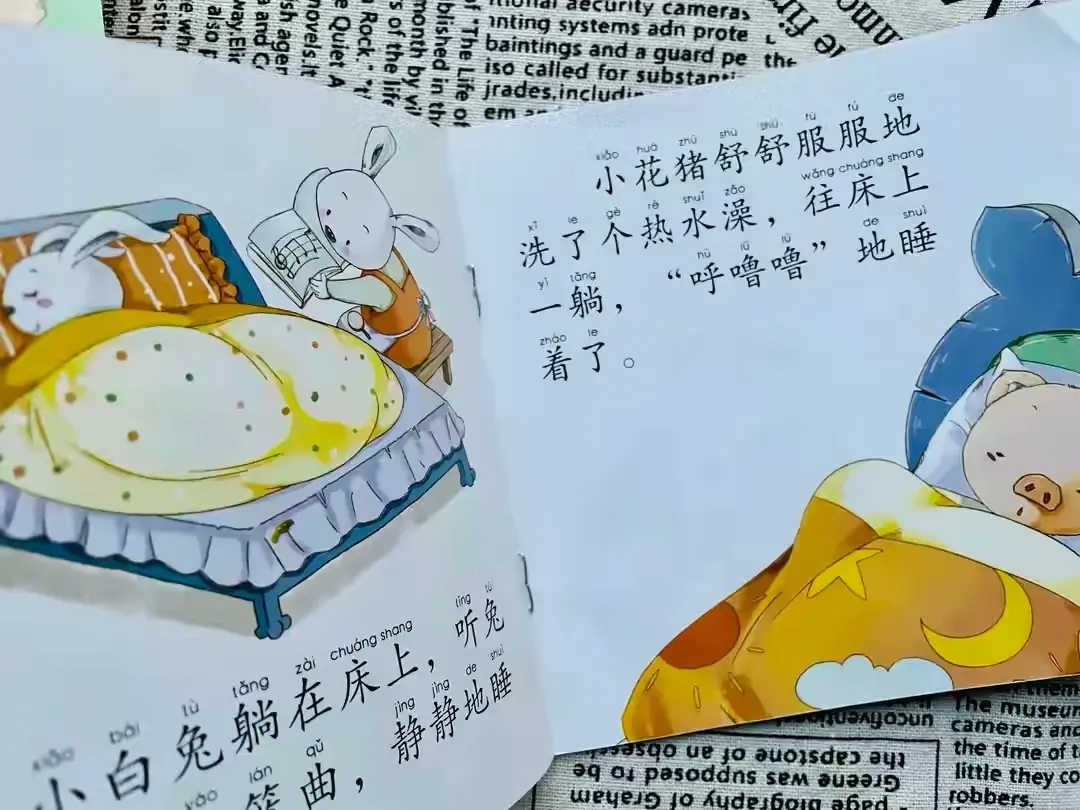 aecurity cameras
anting systems adn prote
baintings and a guard pe
iso called for
the
"The Life of
blished in
month by
Rock,"
of the life
the Quiet A
novels.It
and
also
xiǎo bái tù tǎng zài chuáng shang tīng tù
小白兔躺在床上，听兔
yáo lán qǔ jìng jìng de shuì
曲，静静地睡
xiǎo huā zhū shū shū fú fú de
小花猪舒舒服服地
xǐ le gè rè shuǐ zǎo wǎng chuáng shang
洗了个热水澡，往床上
yì tǎng hū lū lū de shuì
一躺，“呼噜噜”地睡
zháo le
着了。
the capstone of an
Greene was supposed to be
page biography of Graham
The museum
cameras and
the time of
little they co
robbers.